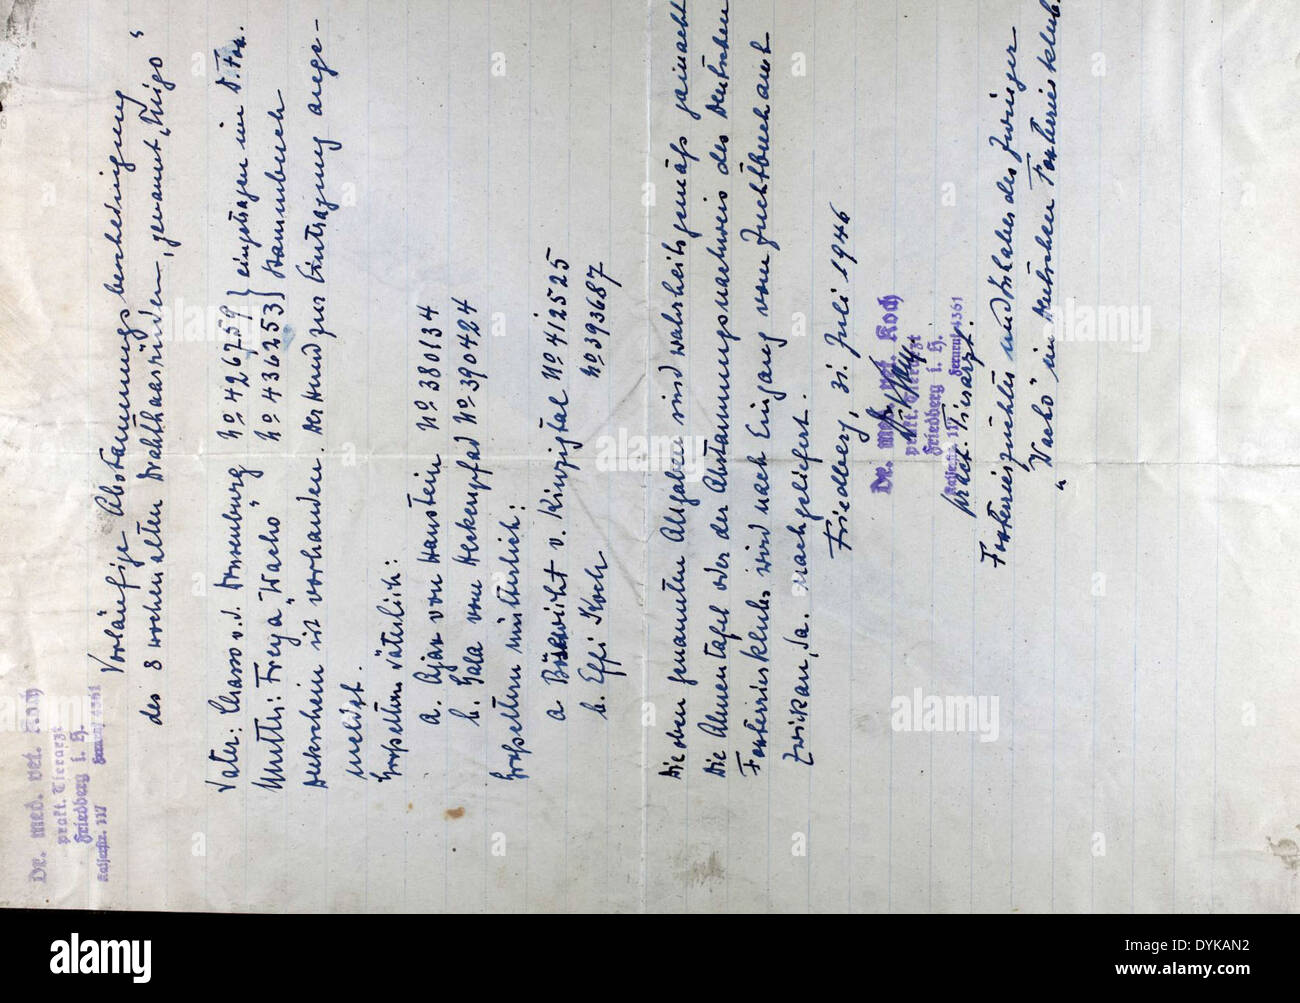 Dr. med. vet. Koch
prakt. Tierarzt
Friedberg i. H.
Kaiserstr. 117 Fernruf 4361
Vorläufige Abstammungsbescheinigung
des 8 Wochen alten Drahthaarrüden, genannt „Ingo“
Vater: Casso v. d. Ronneburg No 426759 } eingetragen im D. Fox.
Mutter: Freya „Wacho“ No 436253 } Stammbuch
Deckschein ist vorhanden. Der Hund zur Eintragung ange-
meldet.
Großeltern väterlich:
a. Ajax vom Haustein No 380134
b. Gala vom Heckenpfad No 390424
Großeltern mütterlich:
a Bösewicht v. Kinzigtal No 412525
b. Effi Koch No 393687
Die oben genannten Angaben sind wahrheitsgemäß gemacht
Die Ahnentafel oder der Abstammungsnachweis des Deutschen
Foxterrierklubs wird nach Eingang vom Zuchtbuchamt
Zwickau, Sa. nachgeliefert.
Friedberg, 31. Juli 1946
Dr. med. vet. Koch
prakt. Tierarzt
Friedberg i. H.
Kaiserstr. 117 Fernruf 4361
prakt. Tierarzt.
Foxterrierzüchter und Inhaber des Zwinger
„Wacho“ im Deutschen Foxterrierklub.
a
alamy
DYKAN2
www.alamy.com